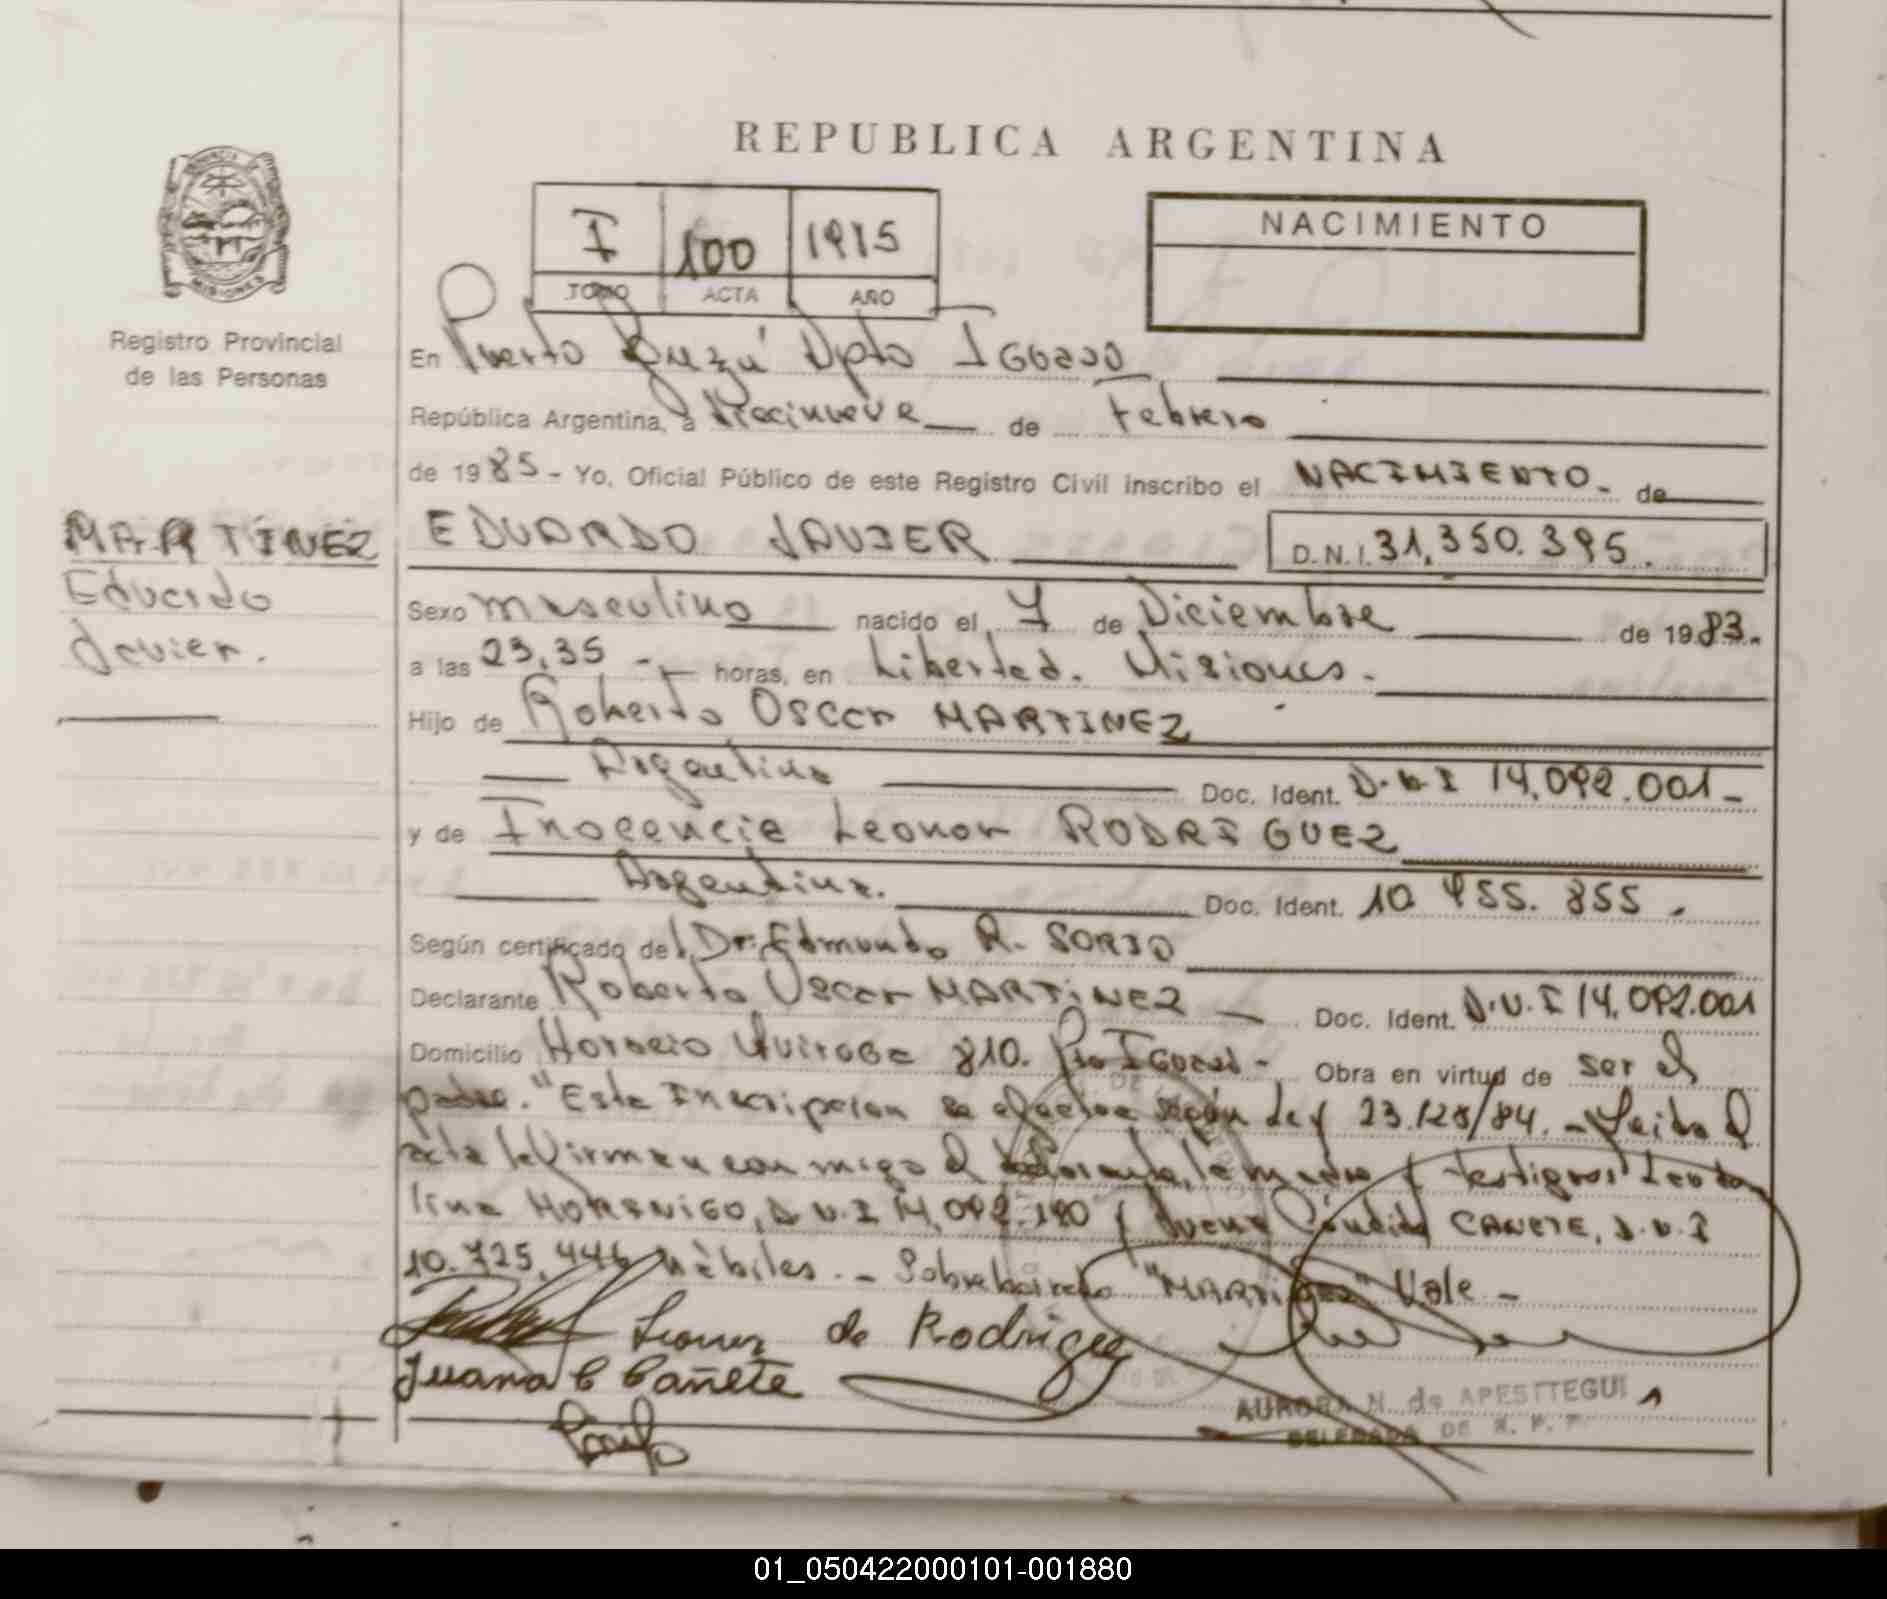 REPUBLICA ARGENTINA
PROVINCIA
MISIONES
Registro Provincial
de las Personas
I 100 1985
TOMO ACTA AÑO
NACIMIENTO
En Puerto Dpto IGUAZU
República Argentina, a Diecinueve de Febrero
de 1985 - Yo, Oficial Público de este Registro Civil inscribo el NACIMIENTO - de
MARTÍNEZ
Eduardo
Javier.
EDUARDO JAVIER D.N.I. 31.350.395.
Sexo masculino nacido el 7 de Diciembre de 1983.
a las 23,35 - horas, en Libertad. Misiones.
Hijo de Roberto Oscar MARTINEZ
Argentina Doc. Ident. D.N.I 14.092.001-
y de Inocencia Leonor RODRIGUEZ
Argentina. Doc. Ident. 10. 455. 855.
Según certificado del Dr. Edmundo R. SORIO
Declarante Roberto Oscar MARTINEZ - Doc. Ident. D.N.I 14.092.001
Domicilio Horacio Quiroga 810. Pto Iguazú - Obra en virtud de ser el
padre. "Esta Inscripcion se efectua según Ley 23.128/84. - Leida el
acta la firman con migo el declarante, la madre y testigos
lina MORINIGO, D.N.I 14.092.190 y Juana Cándida CAÑETE, D.N.I
10.725.446 hábiles. - Sobreborrado "MARTINEZ" Vale -
Leonor de Rodriguez
Juana C Cañete
AURORA N. de APESTTEGUI
DELEGADA DE R. P. P.
01_050422000101-001880